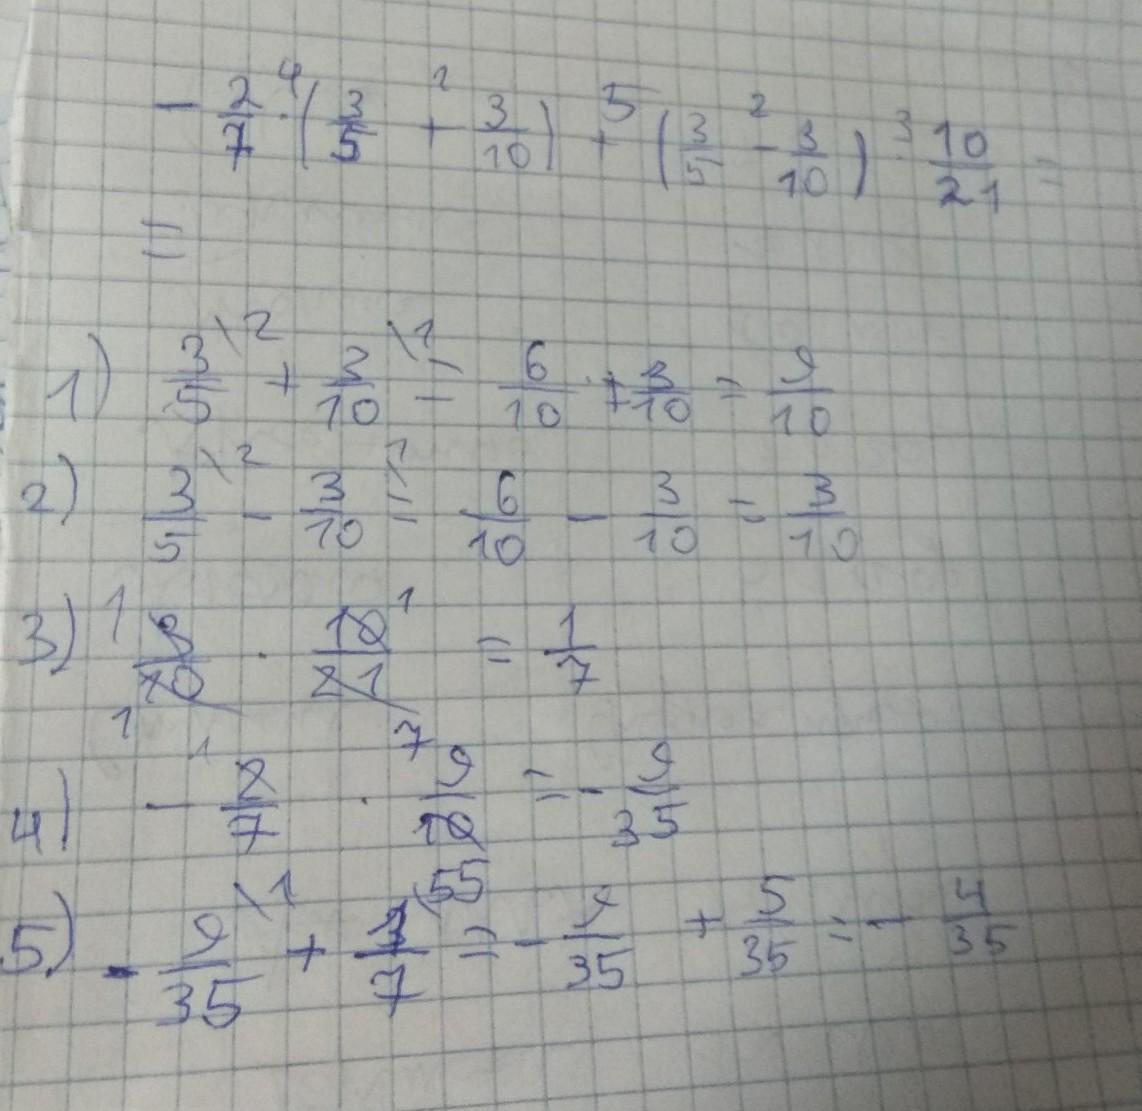 - 2/7 ·⁴ (3/5 +¹ 3/10) +⁵ (3/5 -² 3/10) ·³ 10/21 =
=
1) 3/5 \2 + 3/10 \1 = 6/10 + 3/10 = 9/10
2) 3/5 \2 - 3/10 \1 = 6/10 - 3/10 = 3/10
3) 3/10 · 10/21 = 1/7
4) - 2/7 · 9/10 = - 9/35
5) - 9/35 \1 + 1/7 \5 = - 9/35 + 5/35 = - 4/35